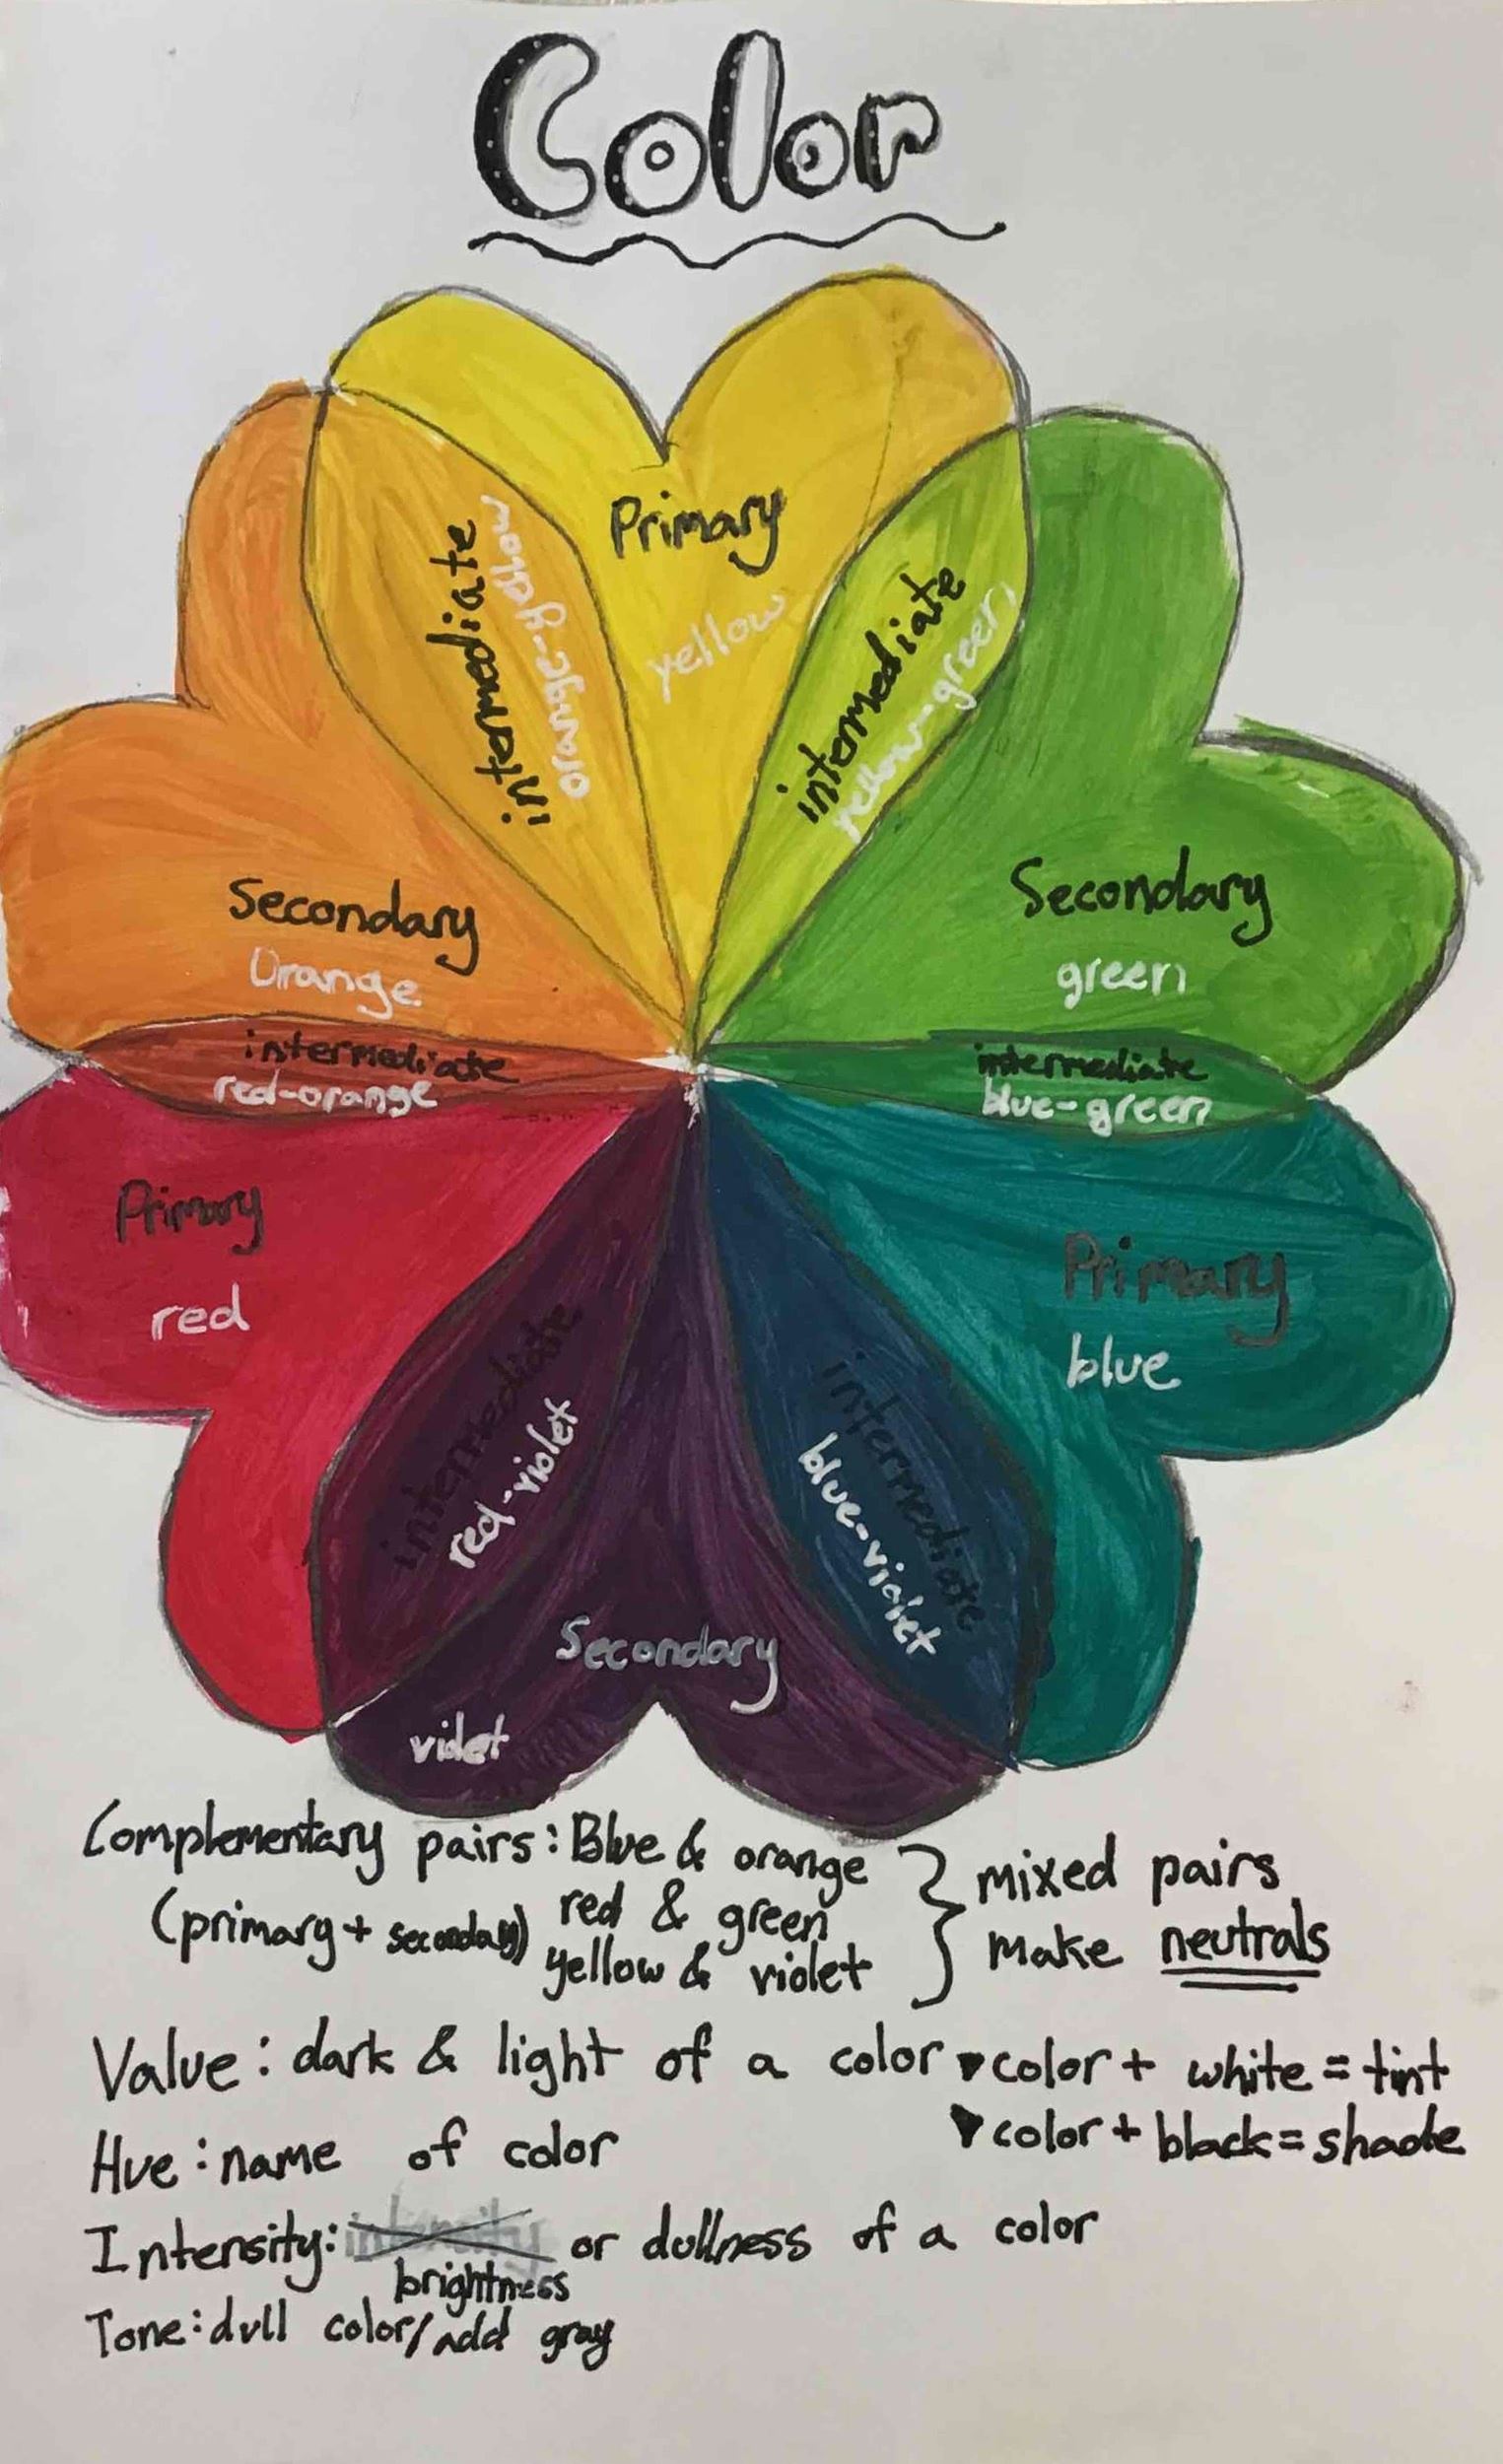 Color
Primary
yellow
intermediate
orange-yellow
intermediate
yellow-green
Secondary
Orange
Secondary
green
intermediate
red-orange
intermediate
blue-green
Primary
red
Primary
blue
intermediate
red-violet
intermediate
blue-violet
Secondary
violet
Complementary pairs: Blue & orange } mixed pairs
(primary + secondary) red & green make neutrals
yellow & violet
Value: dark & light of a color ▸ color + white = tint
▸ color + black = shade
Hue: name of color
Intensity: intensity or dullness of a color
brightness
Tone: dull color/add gray